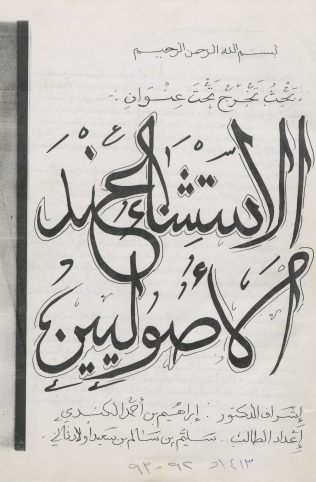 بسم الله الرحمن الرحيم
بَحْثُ تَخَرُّجٍ تَحْتَ عِنْوَانِ :-
الاستثناء عند
الأصوليين
إشراف الدكتور : إبراهيم بن أحمد الكندي
إعداد الطالب : سليم بن سالم بن سعيد
١٤١٣هـ ٩٢ - ٩٣